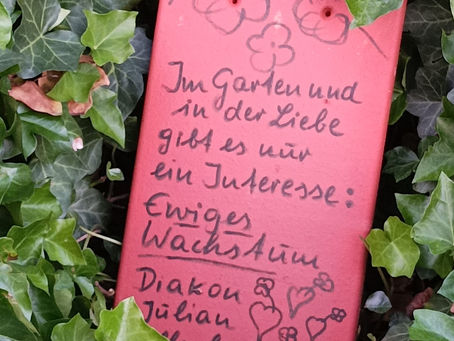 Im Garten und
in der Liebe
gibt es nur
ein Interesse:
Ewiges
Wachstum
Diakon
Julian